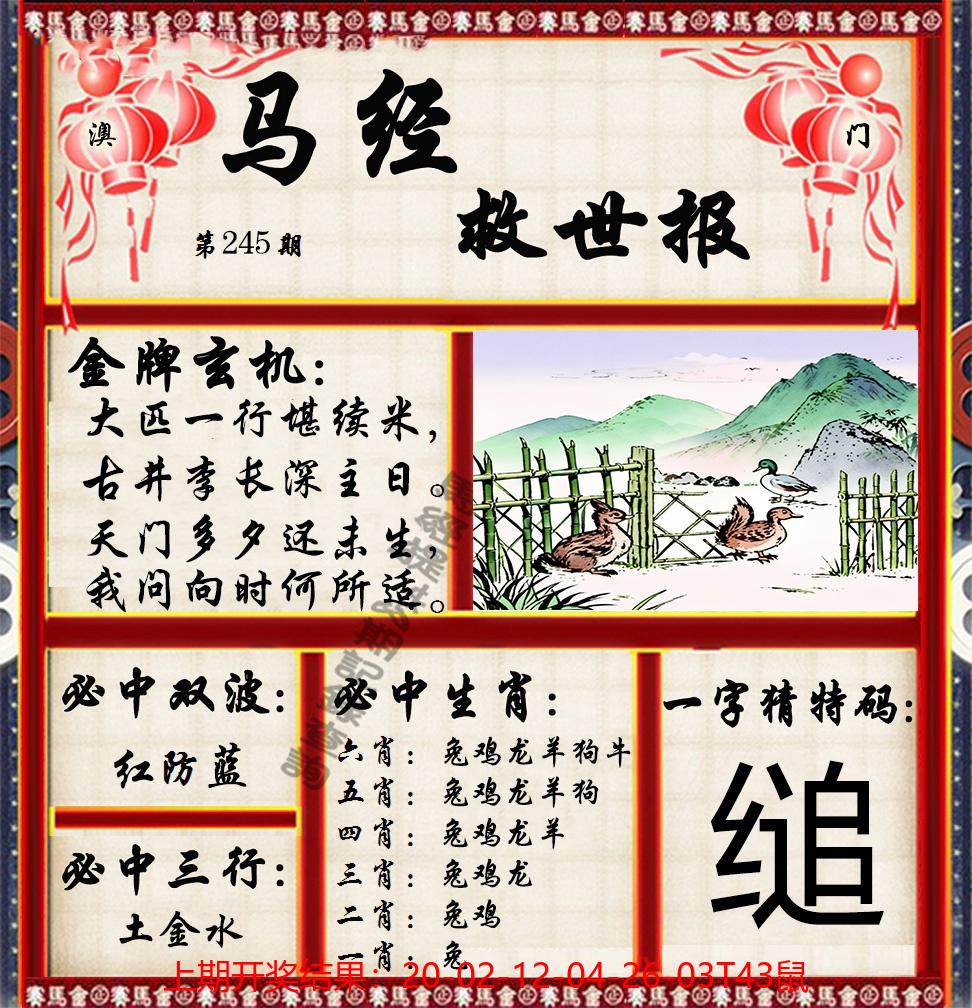 澳
门
马经
救世报
第245期
金牌玄机：
大匹一行堪续米，
古井李长深主日。
天门多夕还未生，
我问向时何所适。
必中双波：
红防蓝
必中三行：
土金水
必中生肖：
六肖： 兔鸡龙羊狗牛
五肖： 兔鸡龙羊狗
四肖： 兔鸡龙羊
三肖： 兔鸡龙
二肖： 兔鸡
一肖： 兔
一字猜特码：
缒
上期开奖结果：20-02-12-04-26-03T43鼠